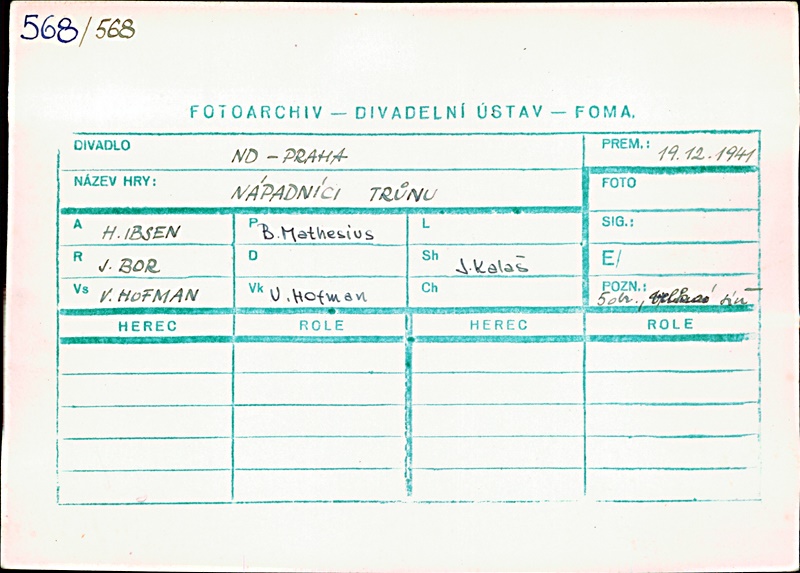 568/568
FOTOARCHIV — DIVADELNÍ ÚSTAV — FOMA.
DIVADLO ND - PRAHA PREM.: 19.12.1941
NÁZEV HRY: NÁPADNÍCI TRŮNU FOTO
A H. IBSEN P B. Mathesius L SIG.:
R J. BOR D Sh J. Kalaš E/
Vs V. HOFMAN Vk V. Hofman Ch POZN.:
5 obr.,
HEREC ROLE HEREC ROLE